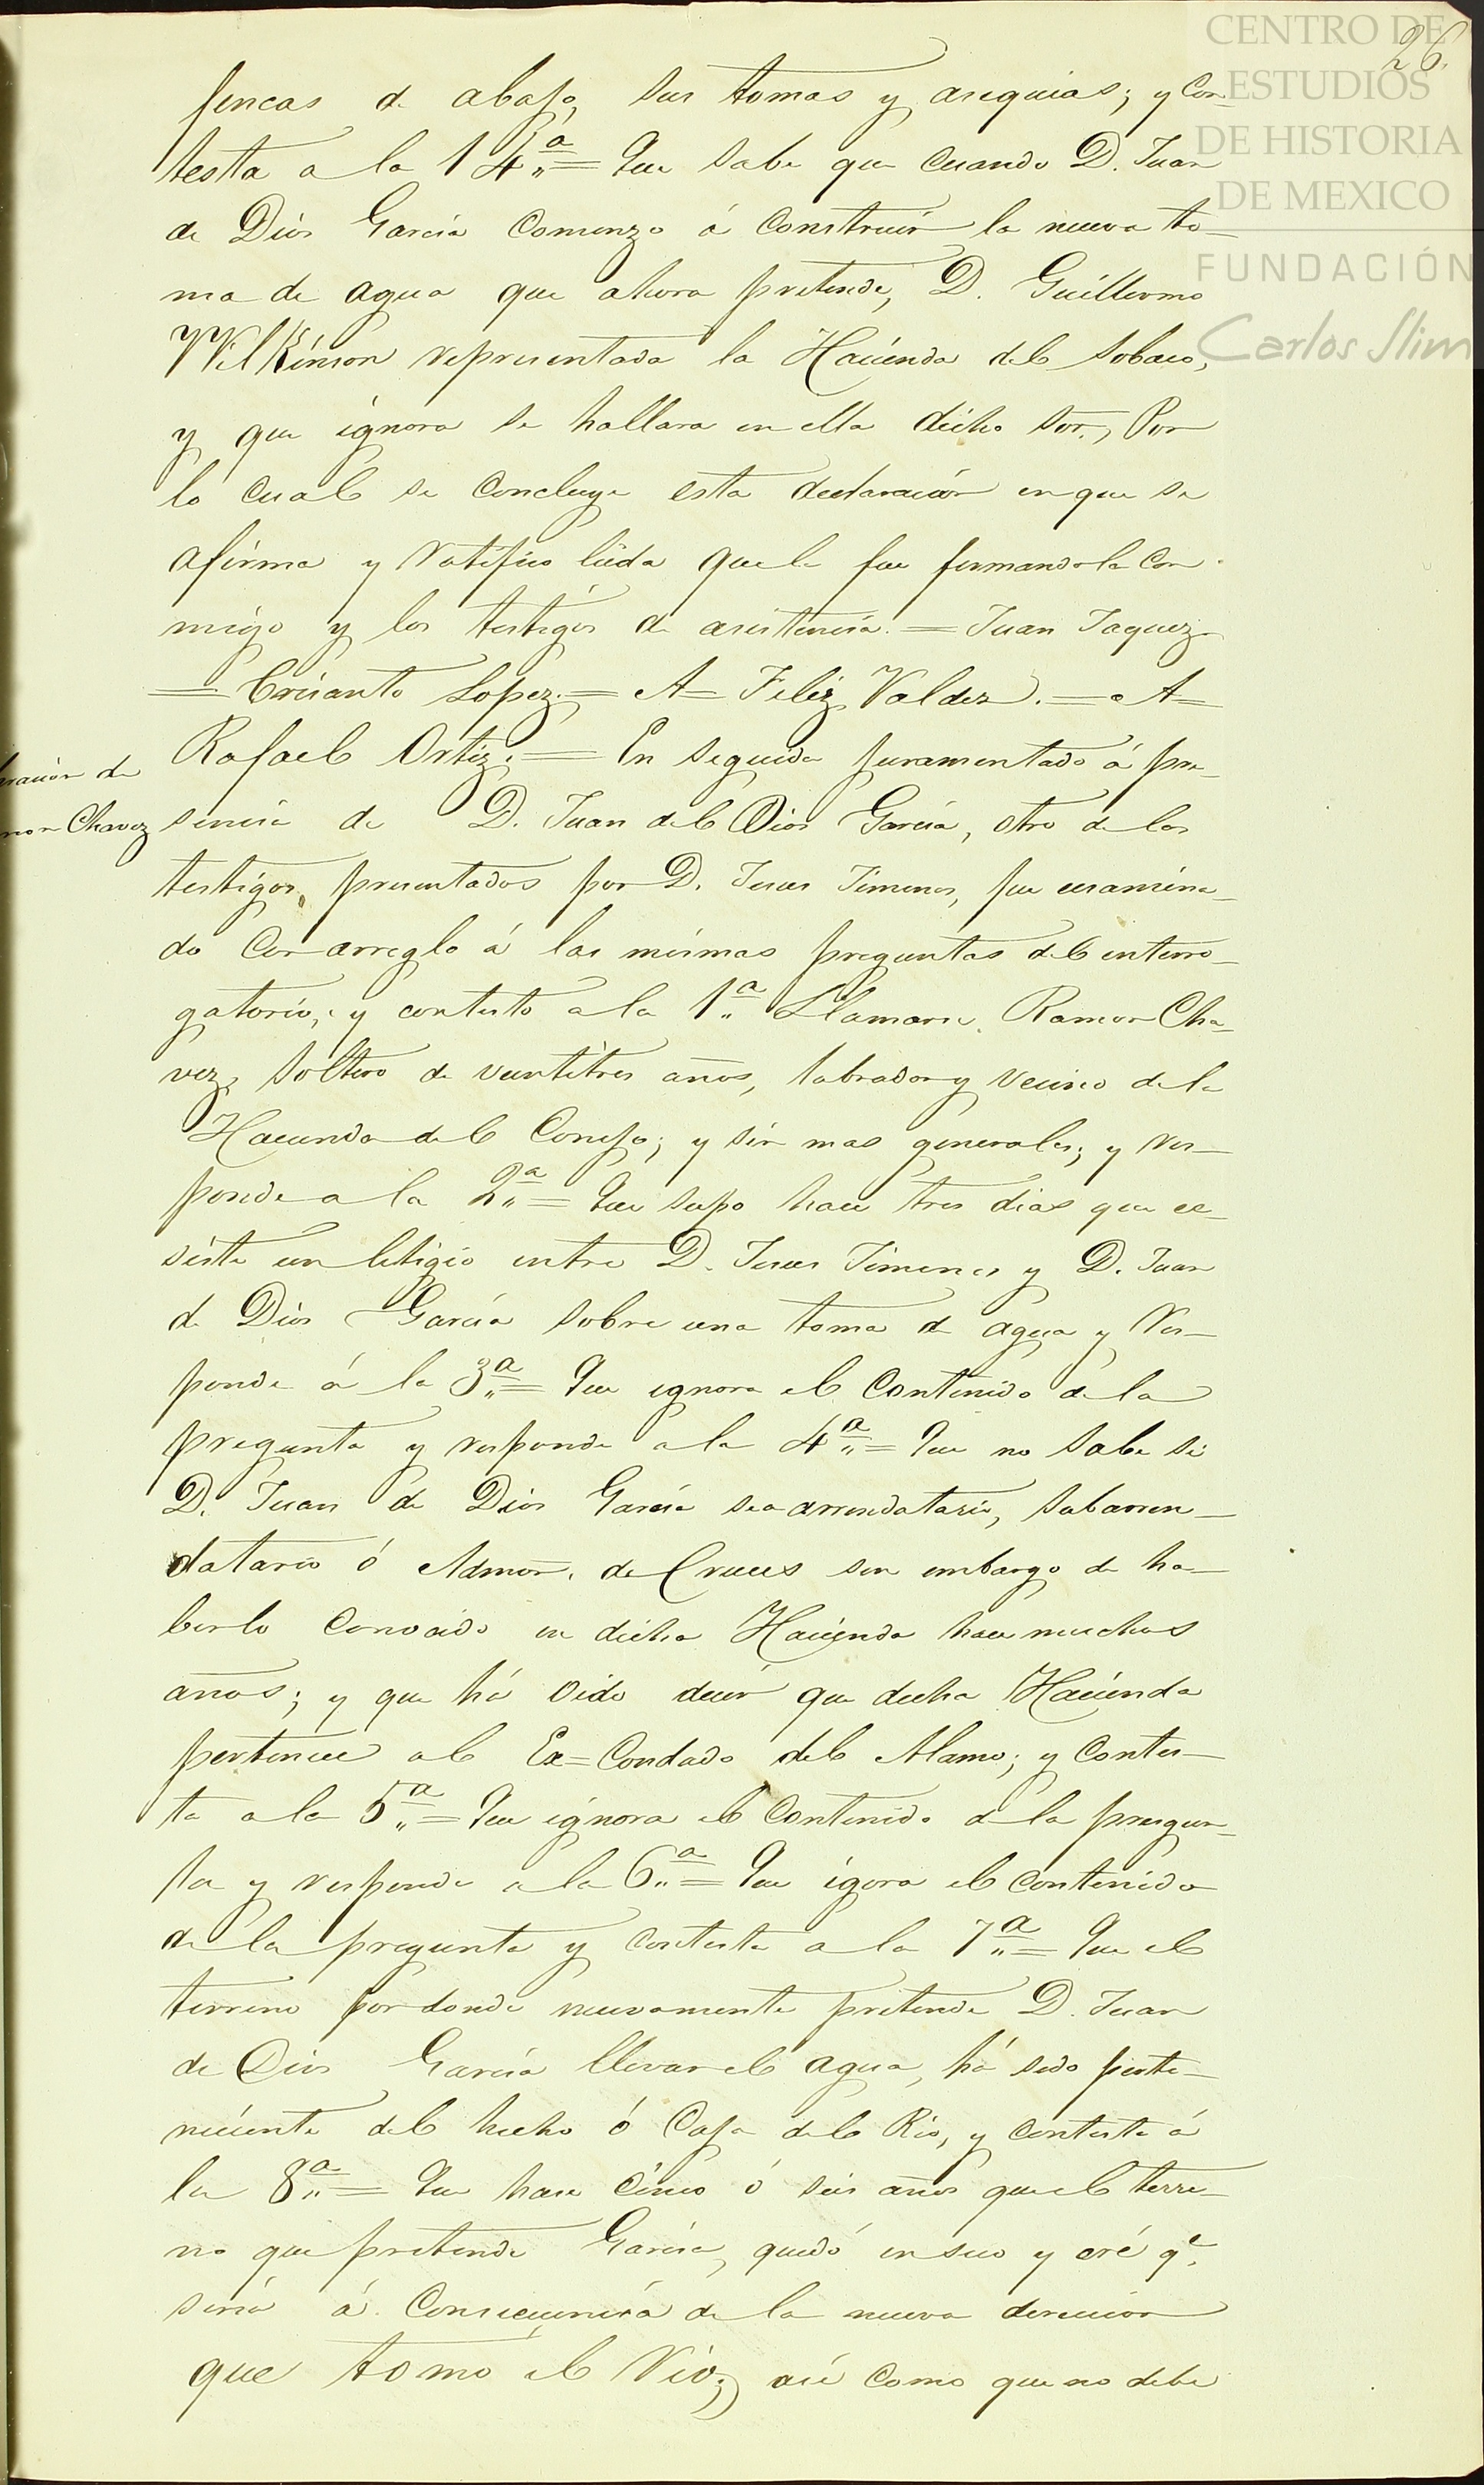 CENTRO DE
ESTUDIOS
DE HISTORIA
DE MEXICO
FUNDACIÓN
Carlos Slim
26.
fincas de abajo, sus tomas y asequias; y con
testa a la 14.ª = Que sabe que cuando D. Juan
de Dios García comenzo á construir la nueva to-
ma de agua que ahora pretende, D. Guillermo
Wilkinson representada la Hacienda del Sobaco,
y que ignora se hallara en ella dicho Sor., Por
lo cual se concluye esta declaración en que se
afirma y ratifico leida que le fue firmandola con-
migo y los testigos de asistencia. = Juan Jaquez.
= Crisanto Lopez. = A= Feliz Valdez. = A=
Rafael Ortiz. = En seguida juramentado á pre-
sencia de D. Juan del Dios García, otro de los
testigos, presentados por D. Jesus Jimenes, fue ecsamina-
do con arreglo á las mismas preguntas del interro-
gatorio; y contesto a la 1.ª Llamarse Ramon Cha-
vez, soltero de veintitres años, labrador y vecino de la
Hacienda del Conejo; y sin mas generales; y res-
ponde a la 2.ª = Que supo hace tres dias que ec-
siste un litigio entre D. Jesus Jimenes y D. Juan
de Dios García sobre una toma de agua y res-
ponde á la 3.ª = Que ignora el contenido de la
pregunta y responde a la 4.ª = Que no sabe si
D. Juan de Dios García sea arrendatario, subarren-
datario ó Admor. de Cruces sin embargo de ha-
berlo conocido en dicha Hacienda hace muchos
años; y que há oido decir que dicha Hacienda
pertenece al Ex=Condado del Alamo; y contes-
ta a la 5.ª = Que ignora el contenido de la pregun-
ta y responde a la 6.ª = Que igora el contenido
de la pregunta y contesta a la 7.ª = Que el
terreno por donde nuevamente pretende D. Juan
de Dios García llevar el agua, há sido perte-
neciente del hecho ó Caja del Rio, y contesta á
la 8.ª = Que hace cinco ó seis años que el terre-
no que pretende García, quedó en seco y cré q.e
seria á consecuencia de la nueva direccion
que tomó el Rio; asi como que no debe
racion de
mon Chavez